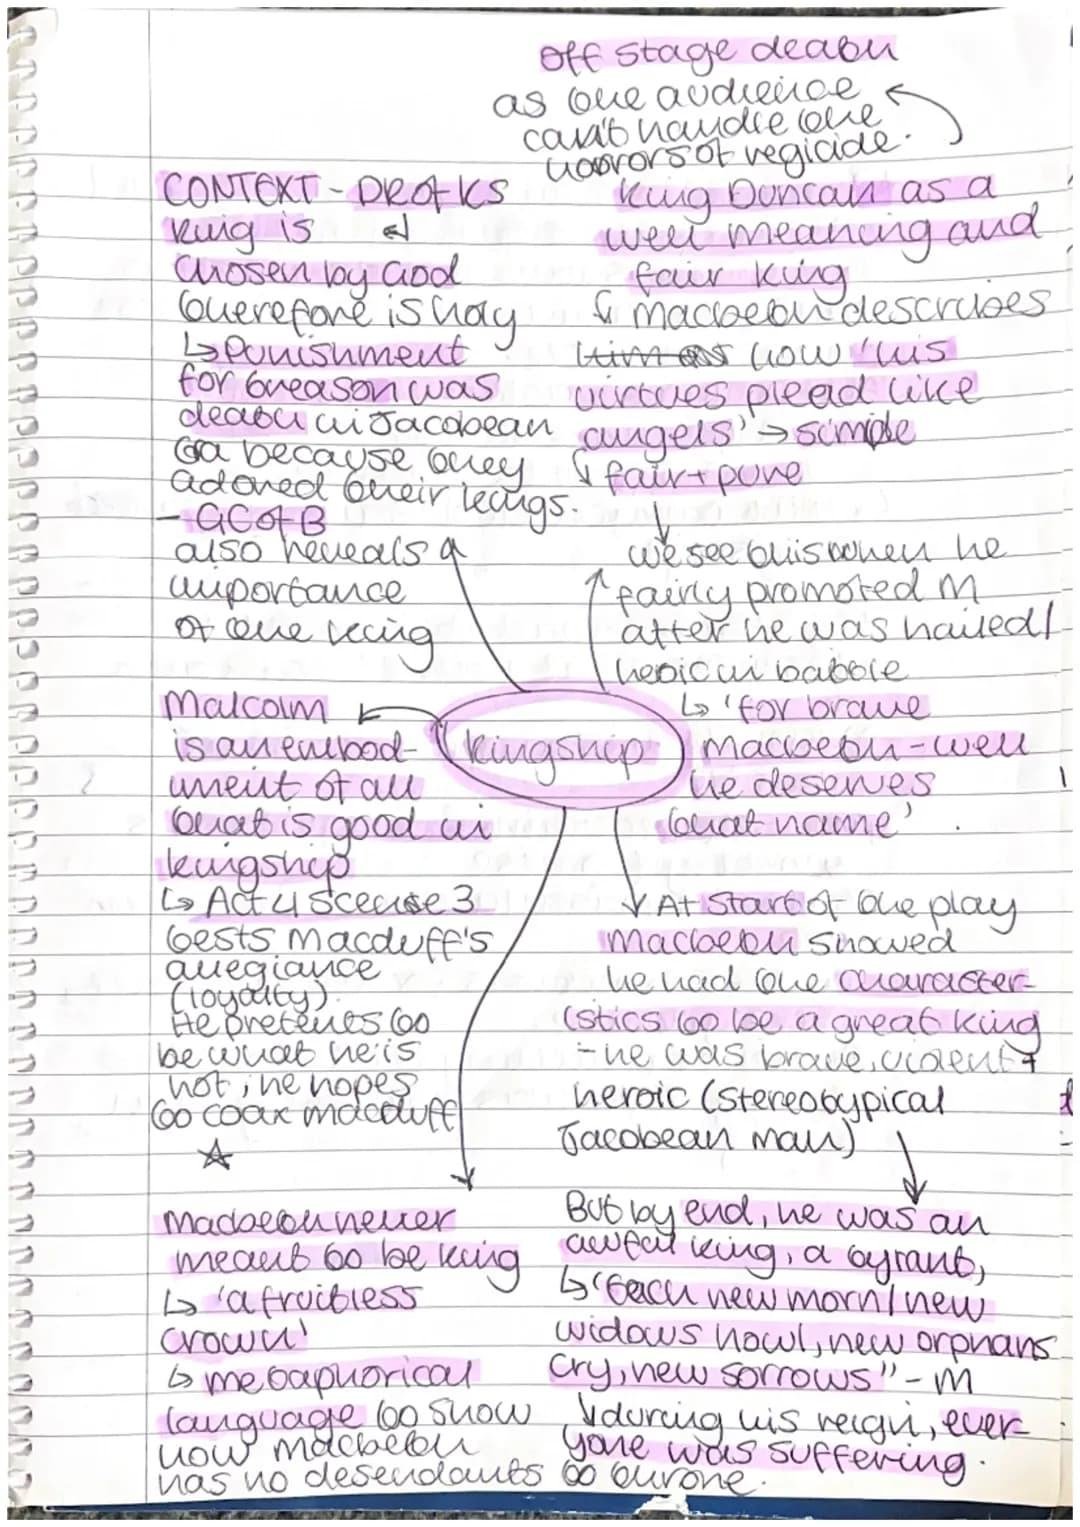 off stage death
as the audience
can't handle the
horrors of regicide.
King Duncan as a
well meaning and
fair king
↳ Macbeth describes
him as how 'his
virtues plead like
angels' → simple
↓ fair + pure
we see this when he
fairly promoted M
after he was hailed/
heroic in battle
↳ 'for brave
Macbeth - well
he deserves
that name'.
CONTEXT - DROFKS
King is
chosen by God
therefore is holy
↳ Punishment
for treason was
death in Jacobean
era because they
adored their kings.
- GCOFB
also reveals
importance
of the king
kingship
Malcolm
is an embod-
iment of all
that is good in
kingship
↳ Act 4 Scene 3
tests Macduff's
allegiance
(loyalty).
He pretents to
be what he is
not, he hopes
to coax macduff
☆
At start of the play
Macbeth showed
he had the character-
istics to be a great king
- he was brave, violent +
heroic (stereotypical
Jacobean man)
Macbeth never
meant to be king
↳ 'a fruitless
crown'
↳ metaphorical
language to show
how macbeth
has no desendants to throne.
But by end, he was an
awful king, a tyrant,
↳ 'each new morn/new
widows howl, new orphans
cry, new sorrows" - M
↓ during his reign, ever-
yone was suffering.